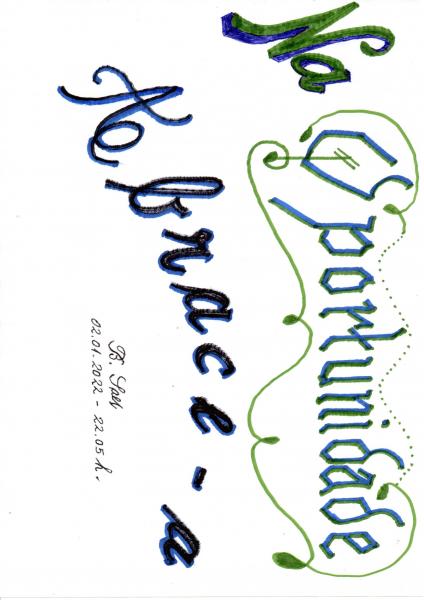 Na
Oportunidade
Abrace-a
02.01.2022 - 22.05 h.